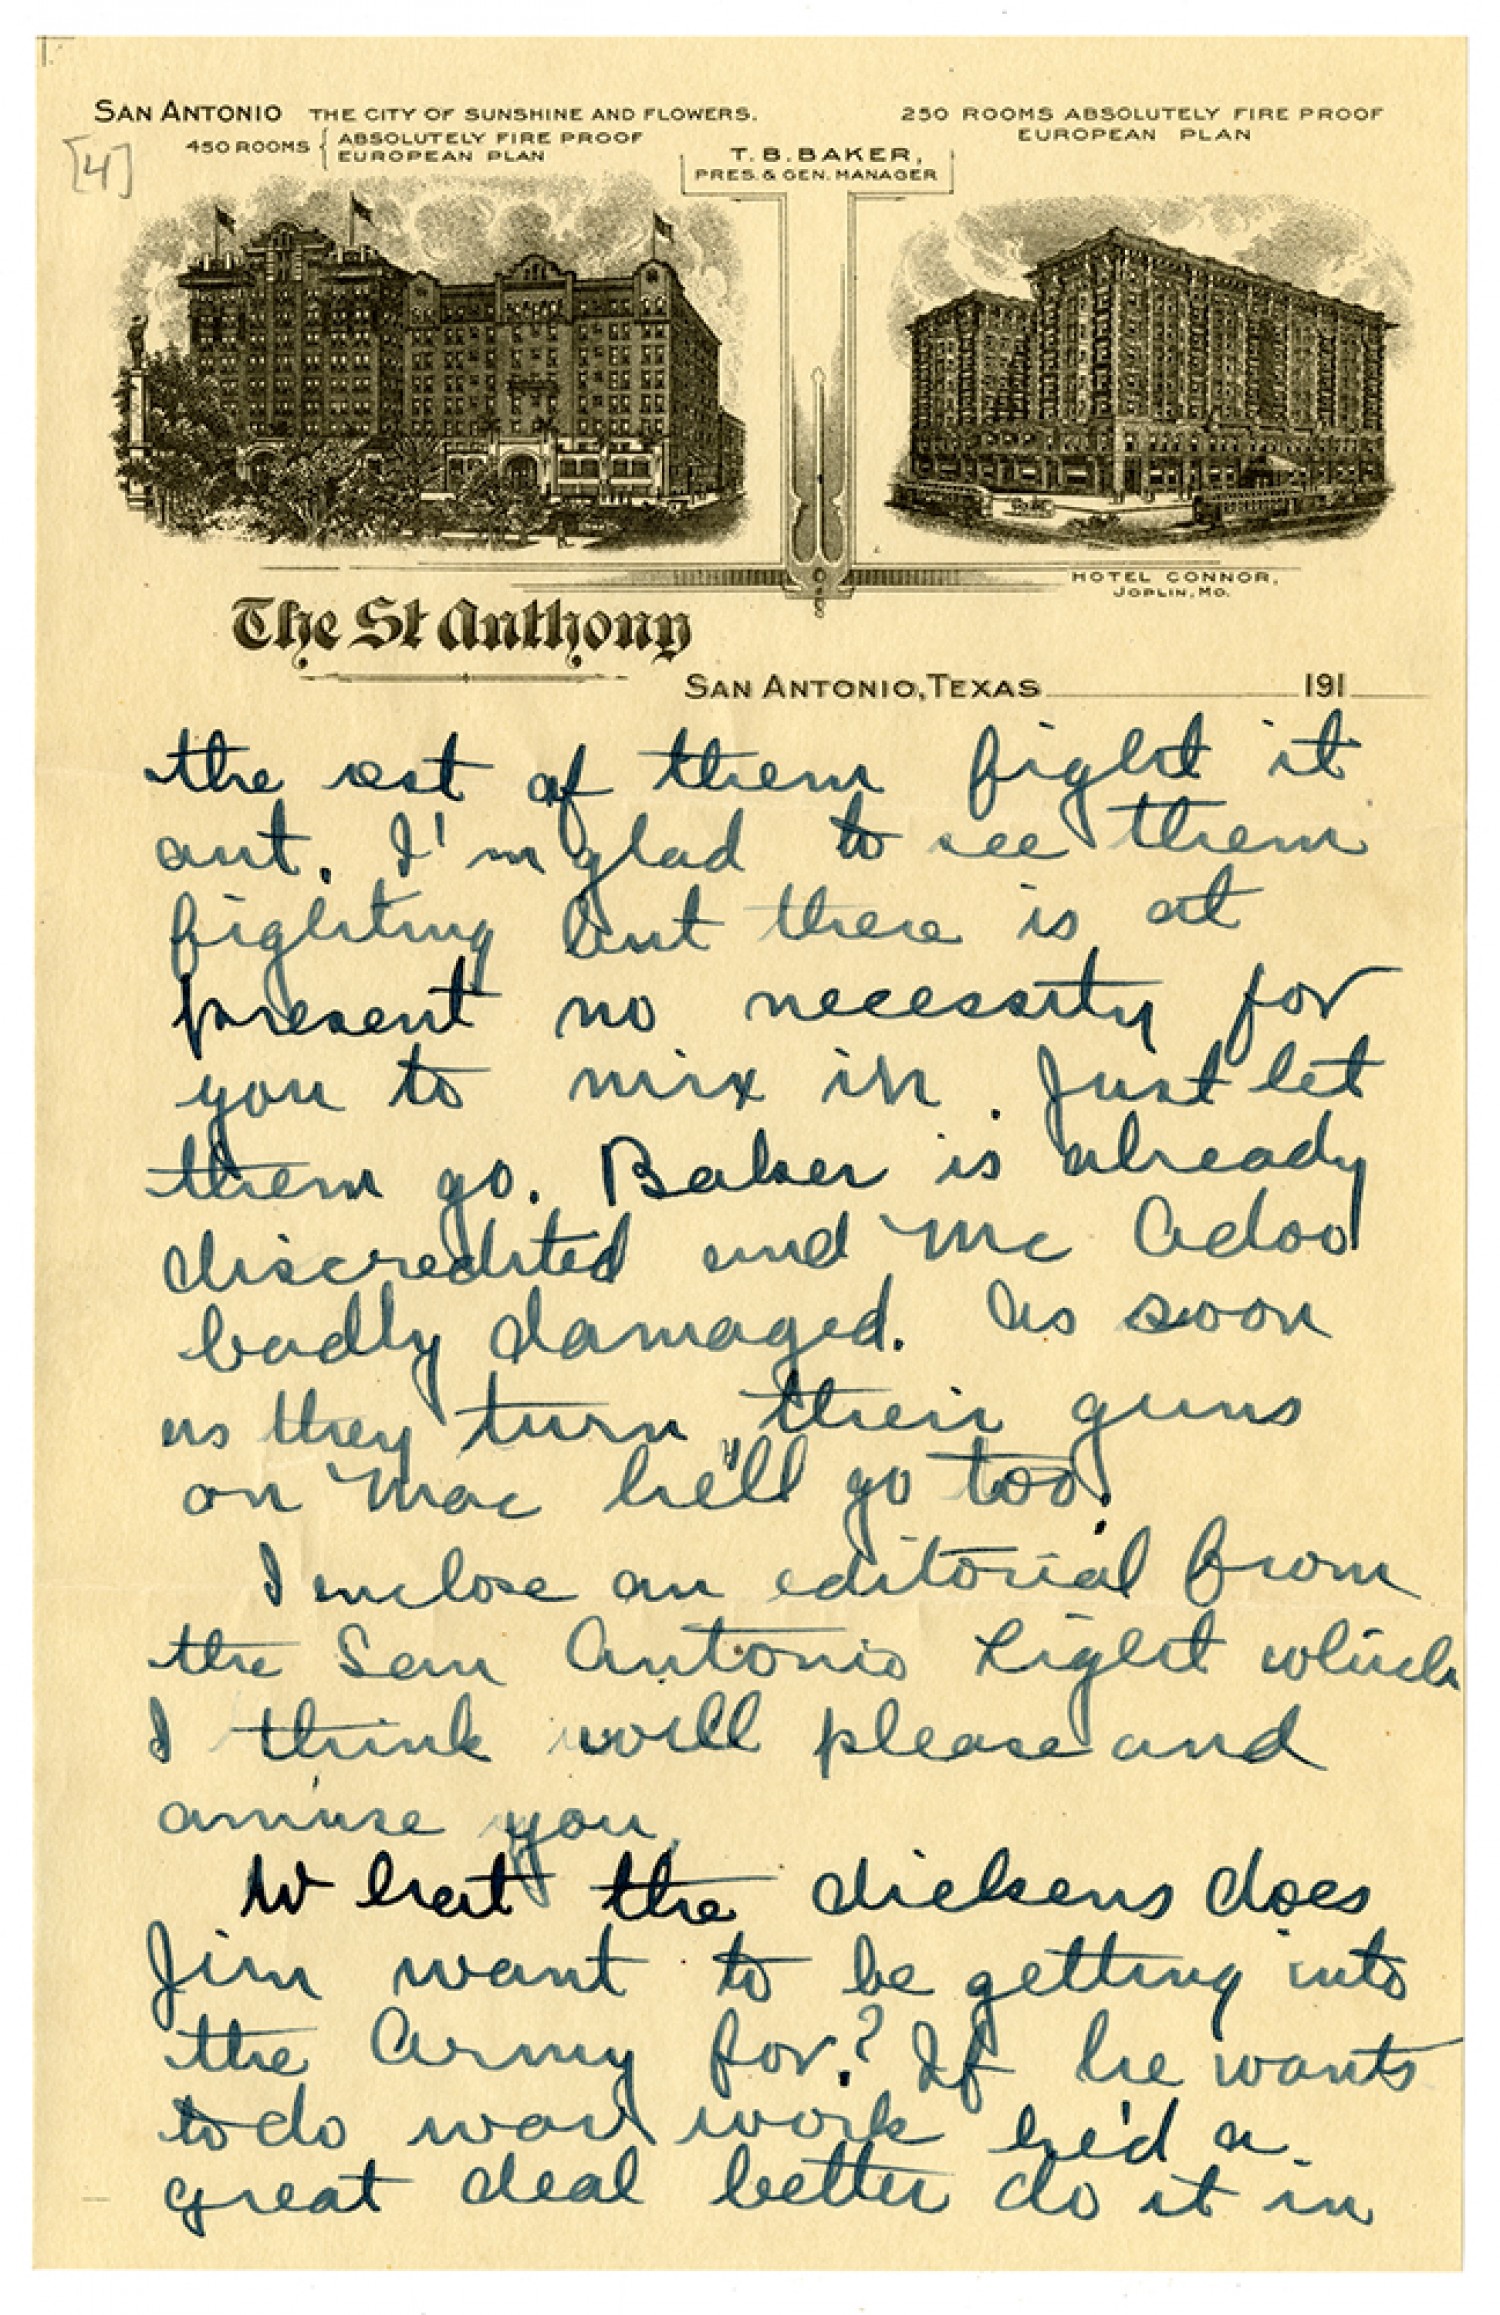 San Antonio The City of Sunshine and Flowers.
450 Rooms { Absolutely Fire Proof
European Plan
250 Rooms Absolutely Fire Proof
European Plan
T. B. Baker,
Pres. & Gen. Manager
[4]
Hotel Connor,
Joplin, Mo.
The St Anthony
San Antonio, Texas 191
the rest of them fight it
out. I'm glad to see them
fighting but there is at
present no necessity for
you to mix in. Just let
them go. Baker is already
discredited and McAdoo
badly damaged. As soon
as they turn their guns
on Mac he'll go too.
I enclose an editorial from
the San Antonio Light which
I think will please and
amuse you.
What the dickens does
Jim want to be getting into
the Army for? If he wants
to do war work he'd a
great deal better do it in